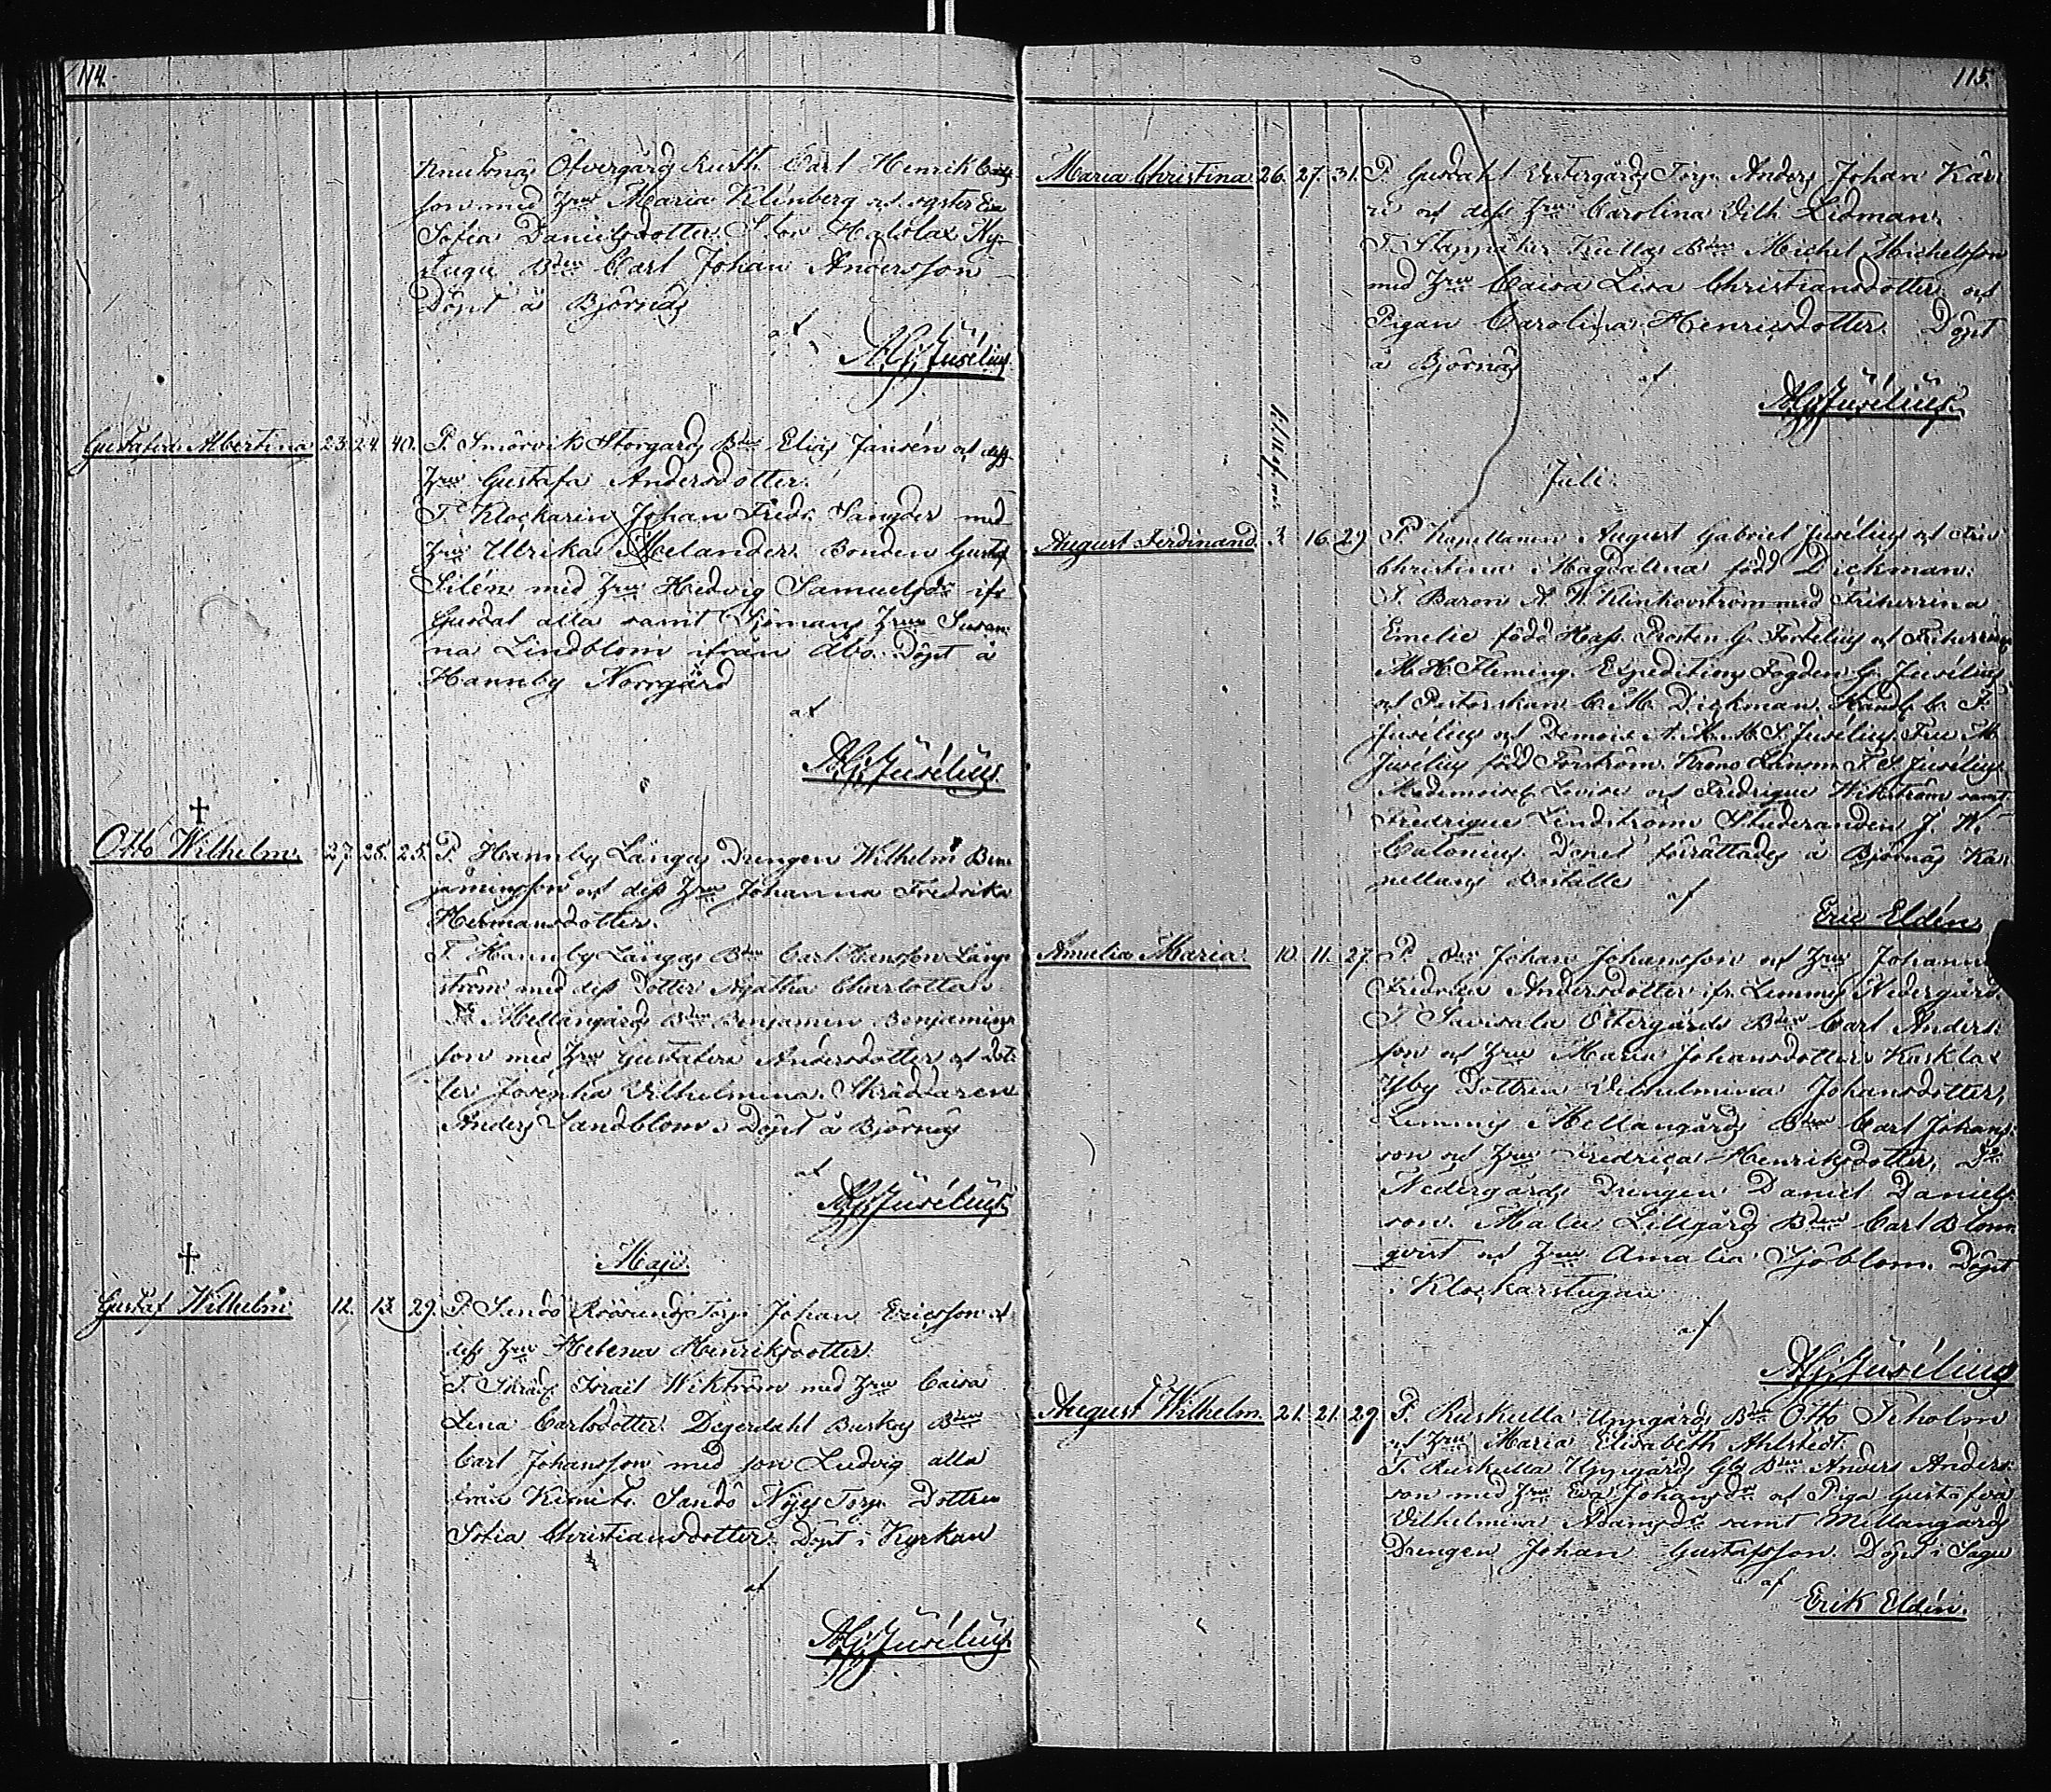 114.
Knutnäs Öfvergårds Rusth. Carl Henrik
son med Hru Maria Klinberg och syster Eva
Sofia Danielsdotter. S:ton Halslax Ny-
stugu Bden Carl Johan Andersson
Döpt å Björnäs
af
AGJusélius.
Gustafva Albertina 23. 24. 40. P. Smörvik Storgårds Bde Elis Jansén och dess
Hru Gustafa Andersdotter.
T. Klockarin Johan Fredr. Sangder med
Hru Ulrika Melander. Bonden Gustaf
Silén med Hru Hedvig Samuelsdr ifr
Gusdal alla samt Sjömans Hru Susan-
na Lindblom ifrån Åbo. Döpt å
Hannby Norrgård
af
AGJusélius
†
Otto Wilhelm. 27. 28. 25. P. Hannby Långas Drengen Wilhelm Ben-
jaminsson och dess Hru Johanna Fredrika
Hermansdotter.
T. Hannby Långas Bde Carl Hansson Lång-
ström med dess dotter Agatha Charlotta.
Do Mellangårds Bden Benjamin Benjamins-
son med Hru Gustafva Andersdotter och dot-
ter Josepha Vilhelmina. Skräddaren
Anders Sandblom. Döpt å Björnäs
af
AGJusélius
Maji.
†
Gustaf Wilhelm 12. 13. 29. P. Sandö Rösund Torp. Johan Ericsson och
dess Hru Helena Henriksdotter.
T. Skrädd. Israel Wikström med Hru Caisa
Lena Carlsdotter. Degerdahl Buskas Bden
Carl Johansson med son Ludvig alla
från Kimito. Sandö Nyes Torp. Dottren
Sofia Christiansdotter. Döpt i Kyrkan
af
AGJusélius
115.
Maria Christina 26. 27. 31. P. Gusdahl Vestergårds Torp. Anders Johan
och dess Hru Carolina Vilh. Lidman.
T. Bden Michel Michelsson
med Hru Caisa Lisa Christiansdotter och
Pigan Carolina Henricsdotter. Döpt
å Björnäs
af
AGJusélius.
Juli.
August Ferdinand. 3 16. 29 P. Kapellanen August Gabriel Jusélius och Fru
Christina Magdalena född Dickman.
T. Baron A. W. Klinkovström med Friherrina
Emelie född Hass. Prosten G. Fortelius och Friherrinnan
M. H. Fleming. Expeditions Fogden G. Jusélius
och Pastorskan C. M. Dickman. Handl. C. F.
Jusélius och Demois. A. M. S. Jusélius. Fru M.
Jusélius född Forström. Krono Länsm. F. S. Jusélius.
Mademoisel. Lovise och Fredrique Wikström samt
Fredrique Lindström. Studeranden J. W.
Calonius. Dopet förrättades å Björnäs Ka-
pellans Boställe
af
Eric Eldén
Amalia Maria. 10. 11. 27. P. Johan Johansson och Hru Johanna
Fredrica Andersdotter ifr. Lemmis Nedergård.
T. Savisala Östergårds Bden Carl Anders-
son och Hru Maria Johansdotter. Kasklax
Yby Dottren Vilhelmina Johansdotter,
Lemmis Mellangårds Bden Carl Johans-
son och Hru Fredrica Henriksdotter, Do
Nedergårds Drengen Daniel Daniels-
son. Malu Lillgårds Bden Carl Blom-
qvist och Hru Amalia Sjöblom. Döpt
i Klockarstugan
af
AGJusélius
August Wilhelm. 21. 21. 29 P. Ruskulla Uppgårds Bde Otto Seholm
och Hru Maria Elisabeth Ahlstedt.
T. Ruskulla Uppgårds Gl. Bden Anders Anders-
son med Hru Eva Johansdr och Piga Gustafva
Vilhelmina Adamsdr samt Mellangårds
Drengen Johan Gustafsson. Döpt i Sagu
af
Erik Eldén.